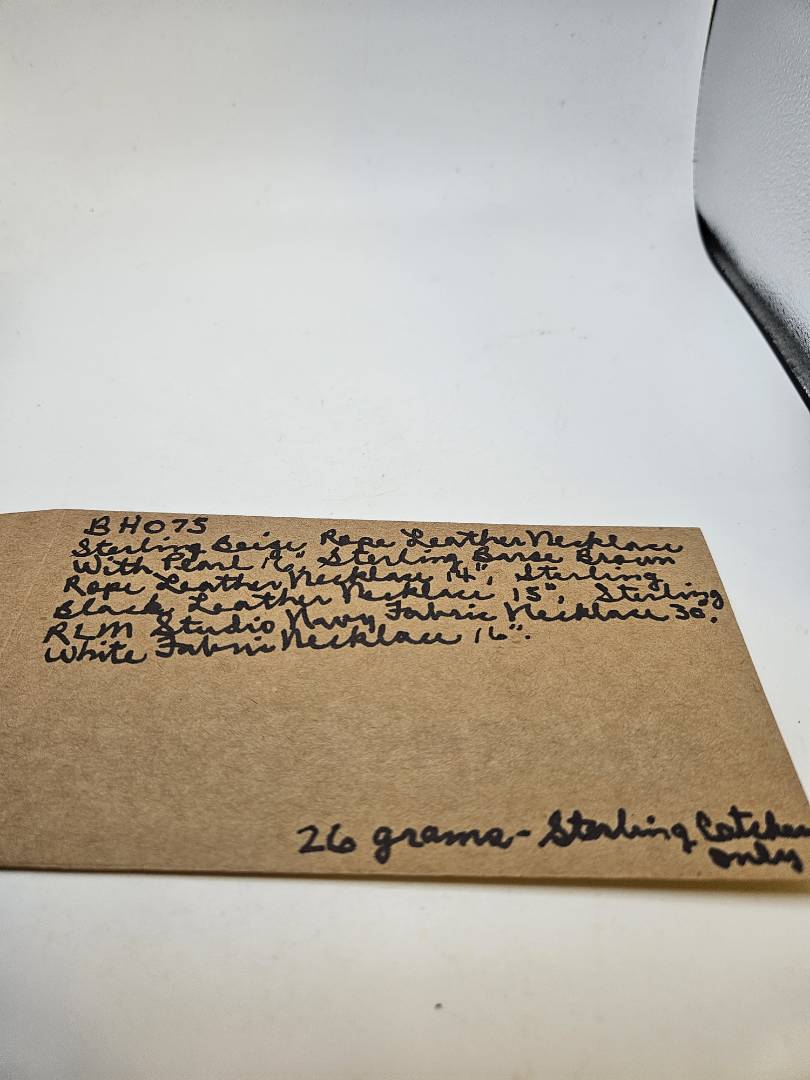 BH075
Sterling Beige Rope Leather Necklace
With Pearl 16", Sterling Barse Brown
Rope Leather Necklace 14", Sterling
Black Leather Necklace 15", Sterling
RLM Studio Navy Fabric Necklace 30.
White Fabric Necklace 16".
26 grams - Sterling Catches
only